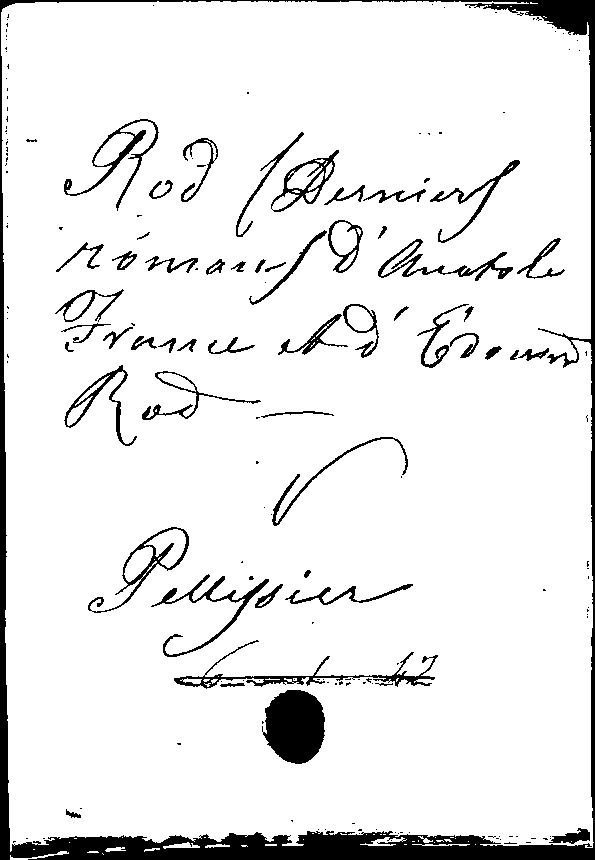 Rod (Derniers
romans d'Anatole
France et d'Édouard
Rod —
v
Pellissier
6 1 42